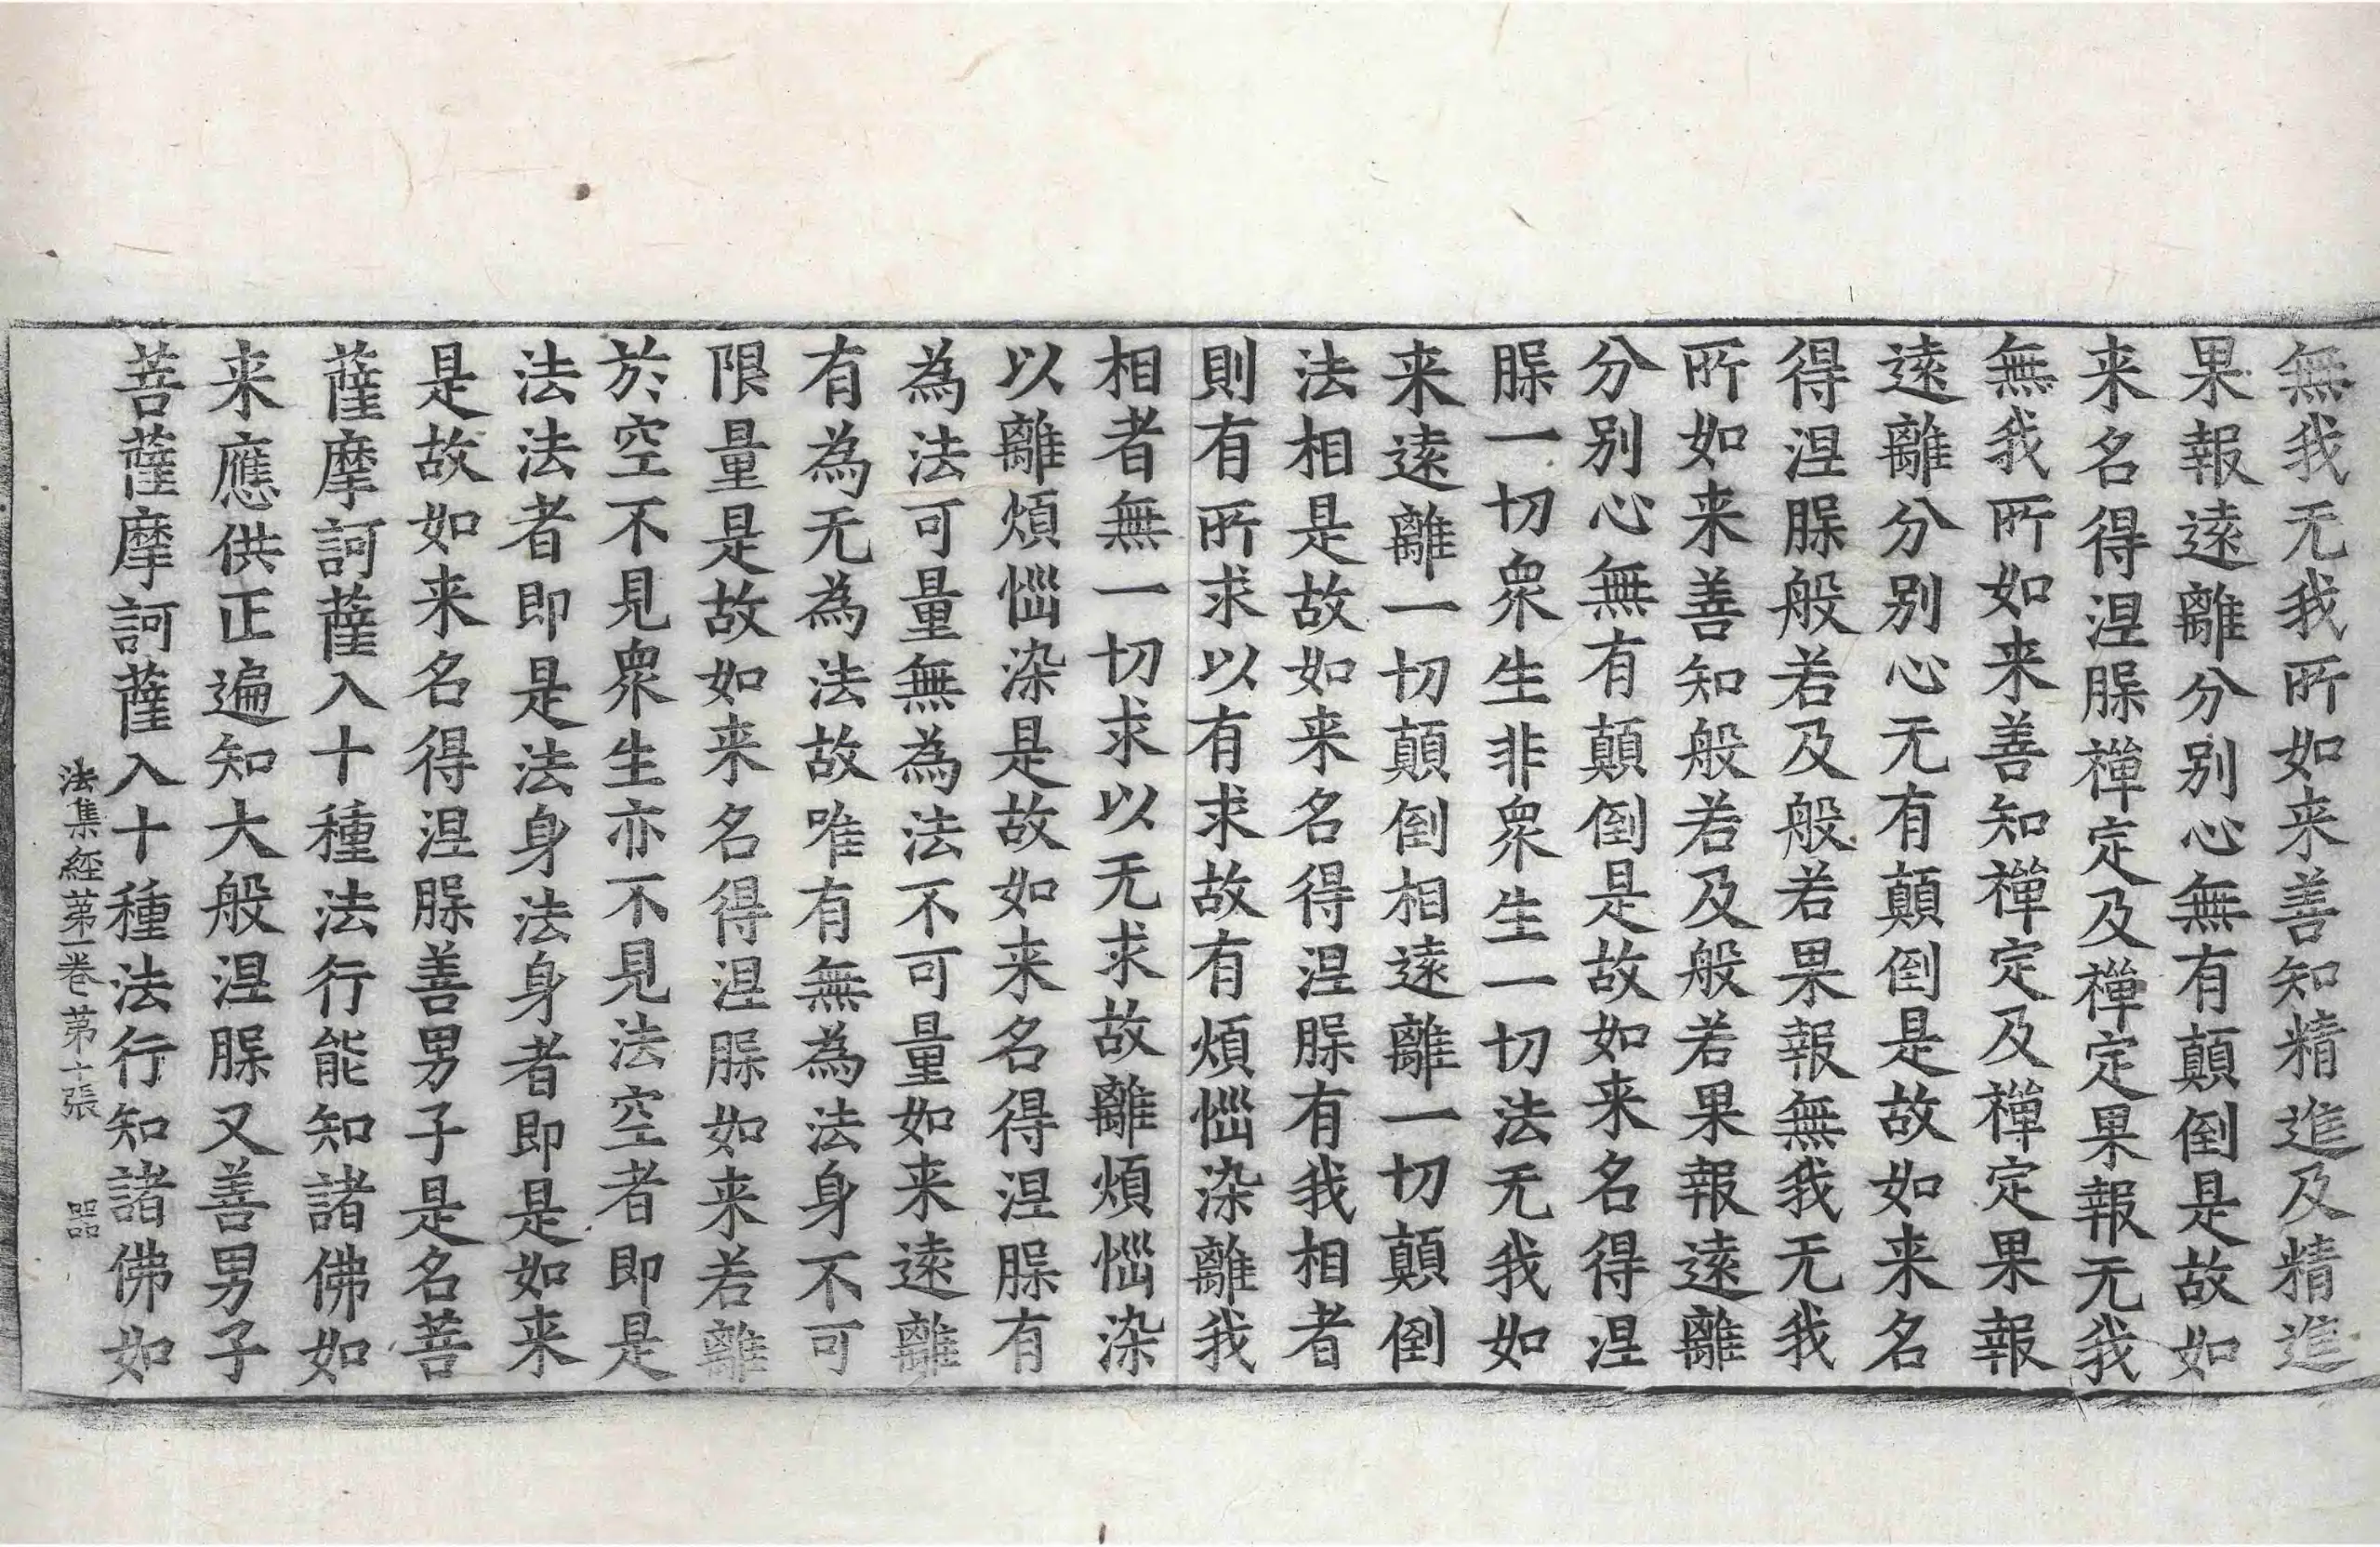 無我无我所如来善知精進及精進
果報遠離分别心無有顛倒是故如
来名得涅槃禪定及禪定果報无我
無我所如来善知禪定及禪定果報
遠離分别心无有顛倒是故如来名
得涅槃般若及般若果報無我无我
所如来善知般若及般若果報遠離
分别心無有顛倒是故如来名得涅
槃一切衆生非衆生一切法无我如
来遠離一切顛倒相遠離一切顛倒
法相是故如来名得涅槃有我相者
則有所求以有求故有煩惱染離我
相者無一切求以无求故離煩惱染
以離煩惱染是故如来名得涅槃有
為法可量無為法不可量如来遠離
有為无為法故唯有無為法身不可
限量是故如来名得涅槃如来若離
於空不見衆生亦不見法空者即是
法法者即是法身法身者即是如来
是故如来名得涅槃善男子是名菩
薩摩訶薩入十種法行能知諸佛如
来應供正遍知大般涅槃又善男子
菩薩摩訶薩入十種法行知諸佛如
法集經第一卷 第十張 器